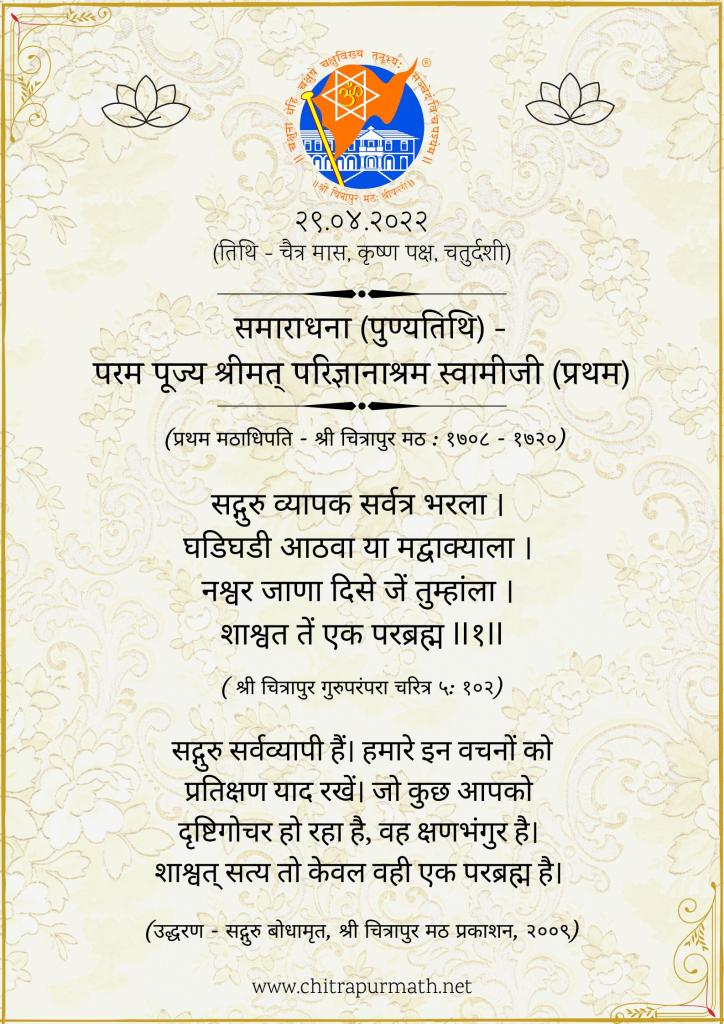 ॥ चक्षुर्नो धेहि चक्षुषे चक्षुर्विख्यै तनूभ्यः
॥ श्री चित्रापुर मठः श्रीवल्ली ॥
®
२९.०४.२०२२
(तिथि - चैत्र मास, कृष्ण पक्ष, चतुर्दशी)
समाराधना (पुण्यतिथि) -
परम पूज्य श्रीमत् परिज्ञानाश्रम स्वामीजी (प्रथम)
(प्रथम मठाधिपति - श्री चित्रापुर मठ : १७०८ - १७२०)
सद्गुरु व्यापक सर्वत्र भरला ।
घडिघडी आठवा या मद्वाक्याला ।
नश्वर जाणा दिसे जें तुम्हांला ।
शाश्वत तें एक परब्रह्म ॥१॥
( श्री चित्रापुर गुरुपरंपरा चरित्र ५: १०२)
सद्गुरु सर्वव्यापी हैं। हमारे इन वचनों को
प्रतिक्षण याद रखें। जो कुछ आपको
दृष्टिगोचर हो रहा है, वह क्षणभंगुर है।
शाश्वत् सत्य तो केवल वही एक परब्रह्म है।
(उद्धरण - सद्गुरु बोधामृत, श्री चित्रापुर मठ प्रकाशन, २००९)
www.chitrapurmath.net